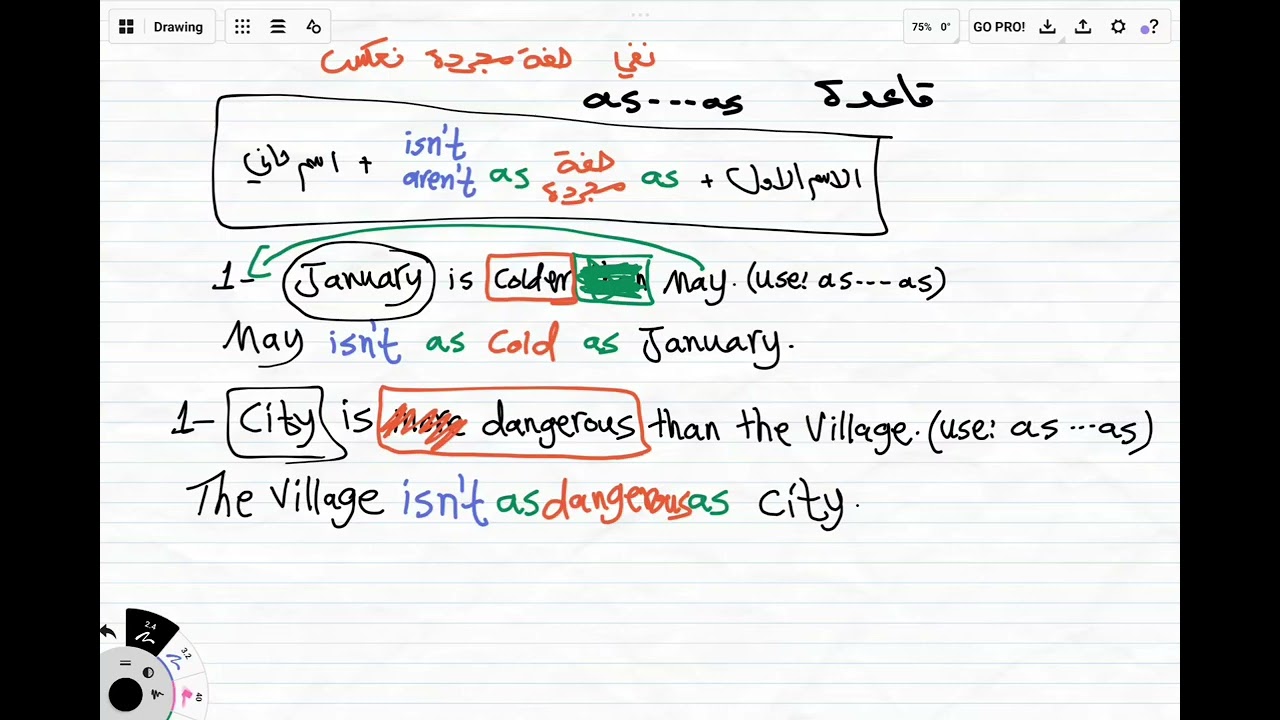 Drawing
75% 0° GO PRO!
نفي صفة مجردة نعكس
قاعدة as---as
اسم ثاني + isn't aren't as صفة مجردة as + الاسم الاول
1- January is colder May. (use: as---as)
May isn't as cold as January.
1- City is more dangerous than the Village. (use: as ---as)
The Village isn't as dangerous as City.
2.4
3.2
40